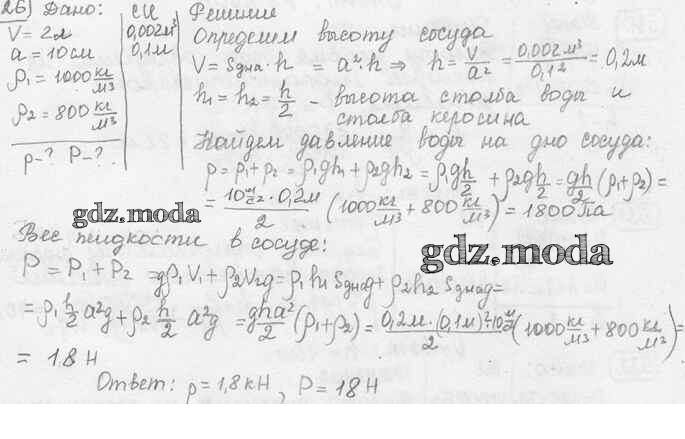 26) Дано:
V = 2л
a = 10см
ρ₁ = 1000 кг/м³
ρ₂ = 800 кг/м³
p-? P-?
СИ
0,002м³
0,1м
Решение
Определим высоту сосуда
V = Sдна · h = a²h ⇒ h = V/a² = 0,002м³/0,1² = 0,2м
h₁ = h₂ = h/2 - высота столба воды и
столба керосина
Найдем давление воды на дно сосуда:
p = p₁ + p₂ = ρ₁gh₁ + ρ₂gh₂ = ρ₁g h/2 + ρ₂g h/2 = gh/2 (ρ₁+ρ₂) =
= 10 м/с² · 0,2м / 2 (1000 кг/м³ + 800 кг/м³) = 1800 Па
gdz.moda
Вес жидкости в сосуде:
gdz.moda
P = P₁ + P₂ = gρ₁V₁ + ρ₂V₂g = ρ₁h₁Sднаg + ρ₂h₂Sднаg =
= ρ₁ h/2 a²g + ρ₂ h/2 a²g = gha²/2 (ρ₁+ρ₂) = 0,2м·(0,1м)²·10 м/с² / 2 (1000 кг/м³ + 800 кг/м³) =
= 18 Н
Ответ: p = 1,8 кН, P = 18 Н